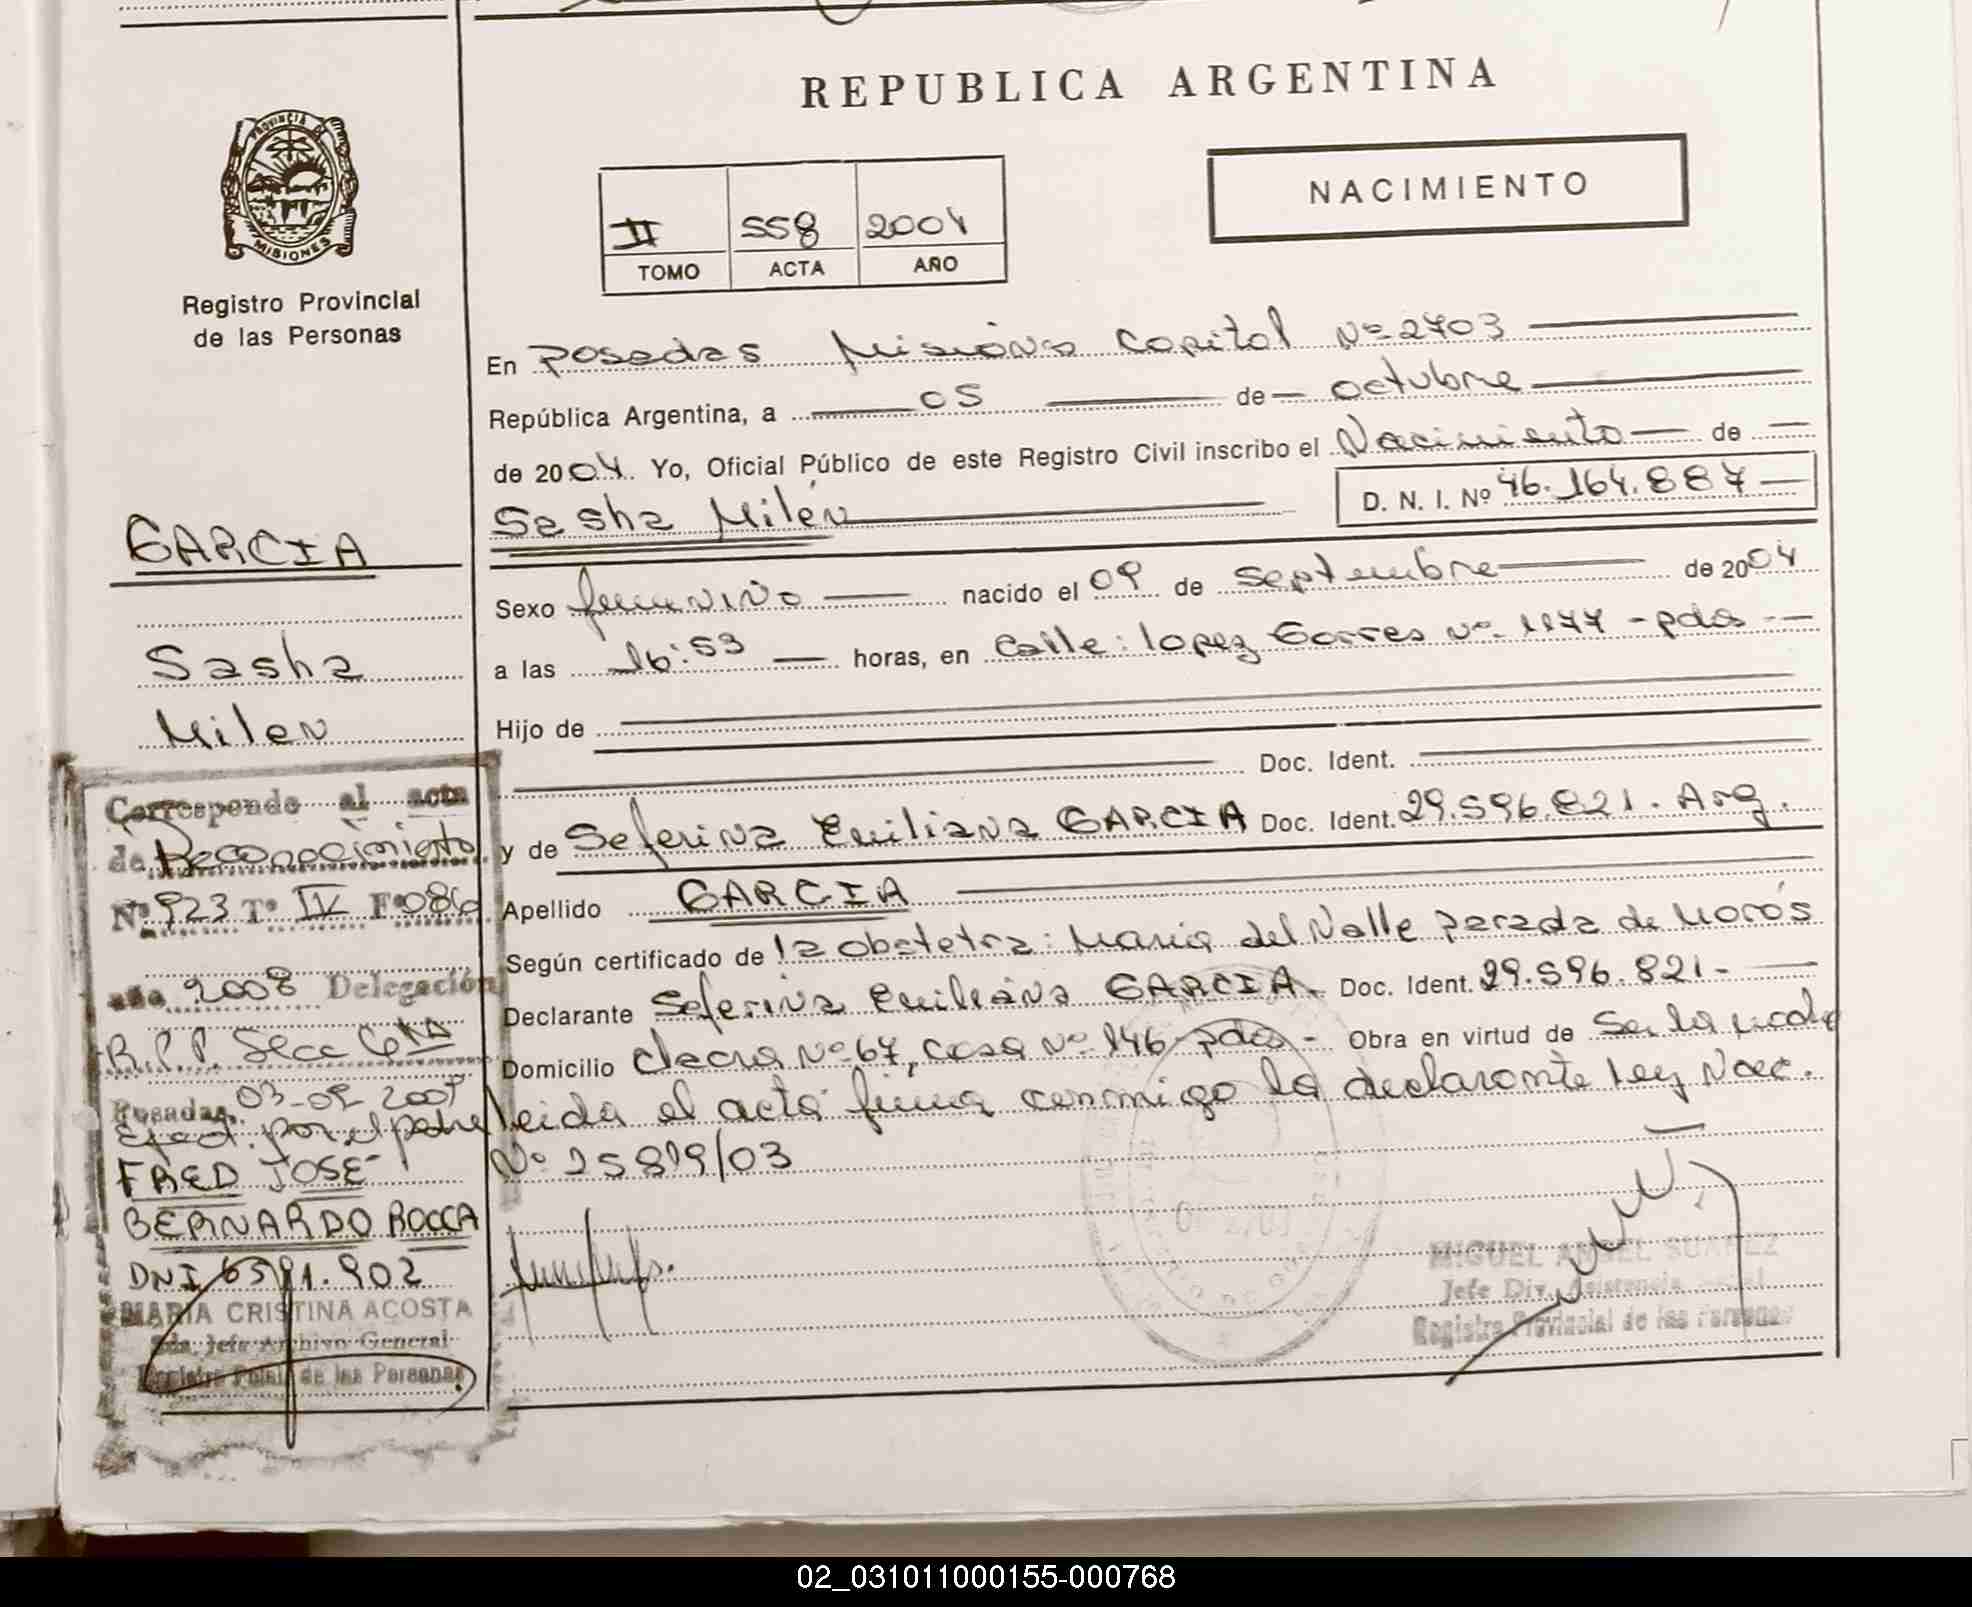 REPUBLICA ARGENTINA
NACIMIENTO
PROVINCIA DE
MISIONES
Registro Provincial
de las Personas
II 558 2004
TOMO ACTA AÑO
En Posadas Misiones Capital Nº 2703
República Argentina, a 05 de octubre
de 2004. Yo, Oficial Público de este Registro Civil inscribo el Nacimiento de
Sasha Milén D. N. I. Nº 46.164.887
Sexo femenino nacido el 09 de Septiembre de 2004
a las 16:53 horas, en Calle: lopez torres nº 1177 - pdas -
Hijo de
Doc. Ident.
y de Seferina Emiliana GARCIA Doc. Ident. 29.596.821. Arg.
Apellido GARCIA
Según certificado de la obstetra: Maria del Valle parada de Morós
Declarante Seferina Emiliana GARCIA. Doc. Ident. 29.596.821.-
Domicilio chacra Nº 67, casa Nº 146 pdas - Obra en virtud de Ser la madre
leida el acta firma conmigo la declarante ley Nac.
Nº 25819/03
MIGUEL ANGEL SUAREZ
Jefe Div. Asistencia
Registro Provincial de las Personas
GARCIA
Sasha
Milen
Corresponde al acta
de Reconocimiento
Nº 923 Tº IV Fº 086
año 2008 Delegación
R.P.P. Secc
Posadas, 03-09-2009
Efect. por el padre
FRED JOSE
BERNARDO ROCCA
DNI 6591.902
MARIA CRISTINA ACOSTA
Jefe Archivo General
Registro Pcial. de las Personas
02_031011000155-000768